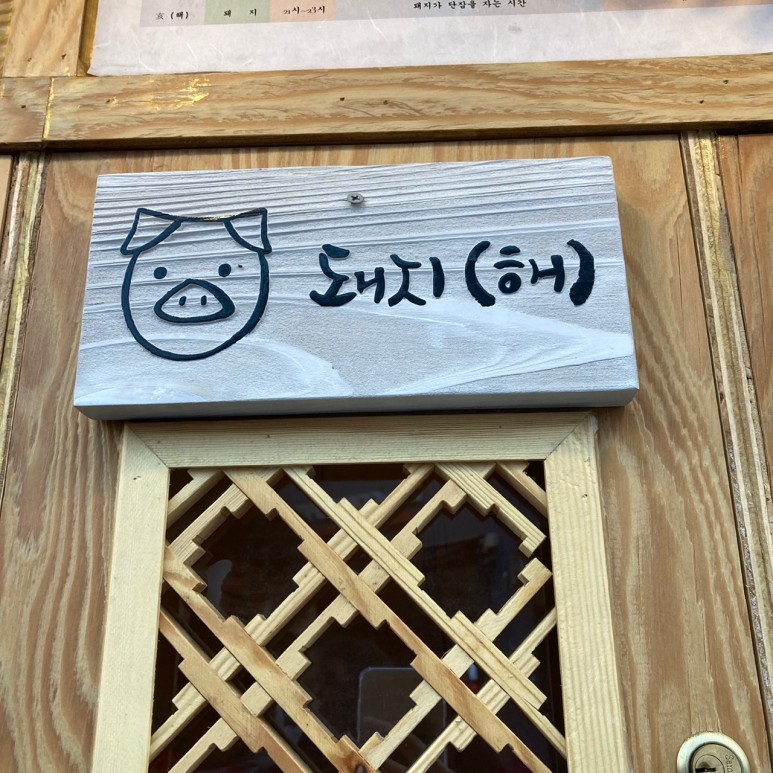 亥 (해) 돼 지 21시~23시 돼지가 단잠을 자는 시간
돼지 (해)